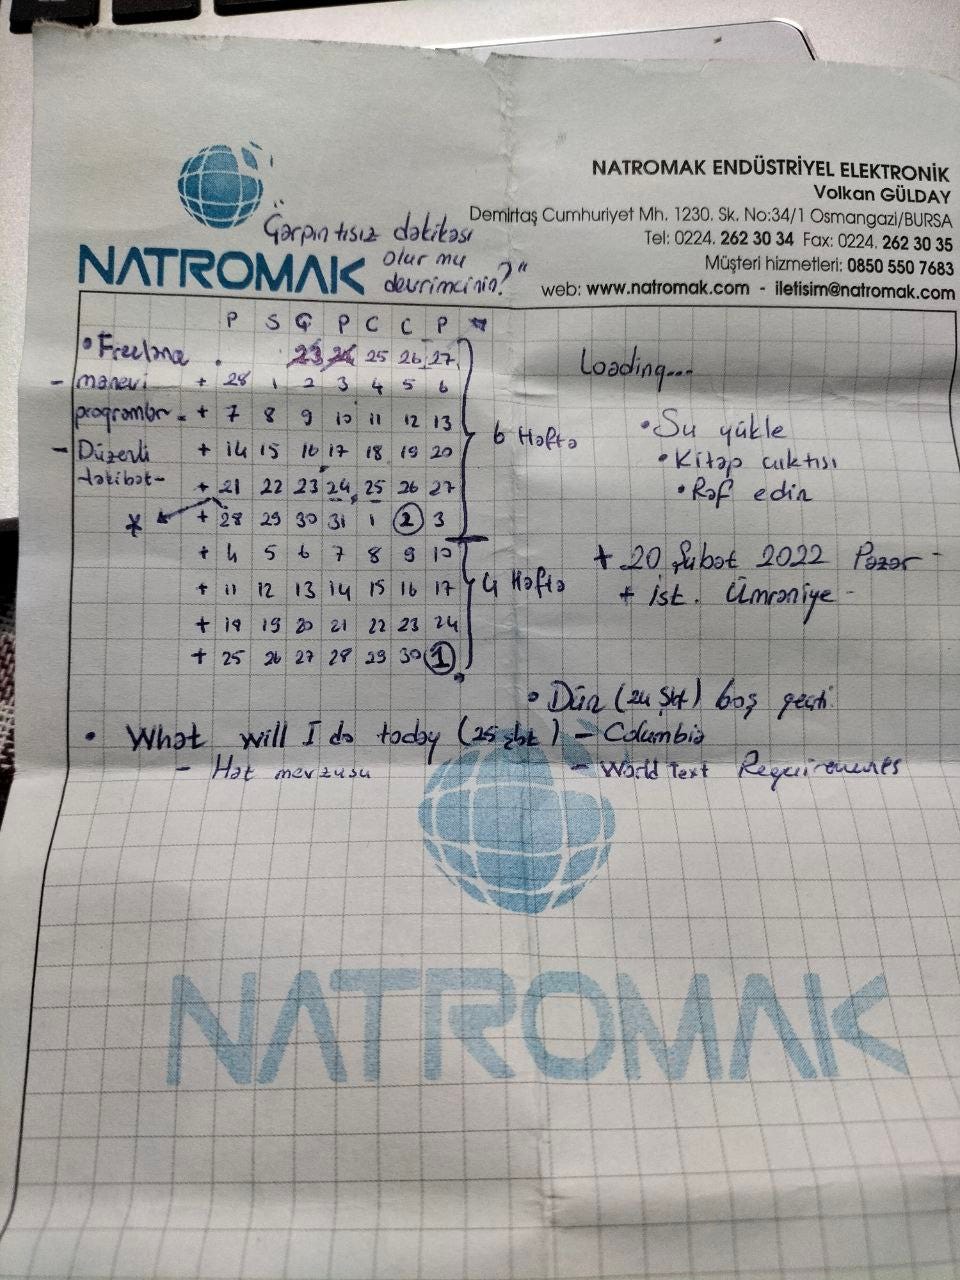 NATROMAK ENDÜSTRİYEL ELEKTRONİK
Volkan GÜLDAY
Demirtaş Cumhuriyet Mh. 1230. Sk. No:34/1 Osmangazi/BURSA
Tel: 0224. 262 30 34 Fax: 0224. 262 30 35
Müşteri hizmetleri: 0850 550 7683
web: www.natromak.com - iletisim@natromak.com
NATROMAK
"Çərpıntısız dəkikəsı
olur mu
devrimcinin?"
P S Ç P C C P
• Freelance . 23 24 25 26 27
- mənevi + 28 1 2 3 4 5 6
proqramlar - + 7 8 9 10 11 12 13
- Düzenli + 14 15 16 17 18 19 20
təkibət - + 21 22 23 24 25 26 27
* + 28 29 30 31 1 2 3
6 Həftə
+ 4 5 6 7 8 9 10
+ 11 12 13 14 15 16 17
+ 18 19 20 21 22 23 24
+ 25 26 27 28 29 30 1
4 Həftə
Loading...
• Su yükle
• Kitəp çıktısı
• Rəf edin
+ 20 Şubət 2022 Pəzər -
+ İst. Ümrəniye -
• Dün (24 Şbt) boş geçti.
• What will I do today (25 şbt) - Columbia
- Hət mevzusu
- World Text Requirements
NATROMAK